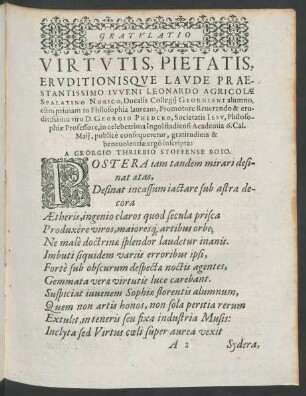 GRATVLATIO
VIRTVTIS, PIETATIS,
ERVDITIONISQVE LAVDE PRAE-
STANTISSIMO IVVENI LEONARDO AGRICOLÆ
SPALATINO NORICO, Ducalis Collegij GEORGIANI alumno,
cùm primam in Philosophia lauream, Promotore Reuerendo & eru-
ditissimo viro D. GEORGIO PHEDERO, Societatis IESV, Philoso-
phiæ Professore, in celeberrima Ingolstadiensi Academia 8. Cal.
Maij, publicè consequeretur, gratitudinis &
beneuolentiæ ergò inscripta:
A GEORGIO THRIEBIO STOFFENSE BOIO.
POSTERA tam tandem mirari desi-
nat ætas,
Desinat incassum iactare sub astra de-
cora
Ætheris, ingenio claros quod secula prisca
Produxêre viros, maioresq́; artibus orbe,
Ne malè doctrinæ splendor laudetur inanis.
Imbuti siquidem varijs erroribus ipsi,
Fortè sub obscurum despecta noctis agentes,
Gemmata vera virtutis luce carebant.
Suspiciat iuuenem Sophiæ florentis alumnum,
Quem non artis honos, non sola peritia rerum
Extulit, in teneris seu fixa industria Musis:
Inclyta sed Virtus cœli super aurea vexit
A 2 Sydera,